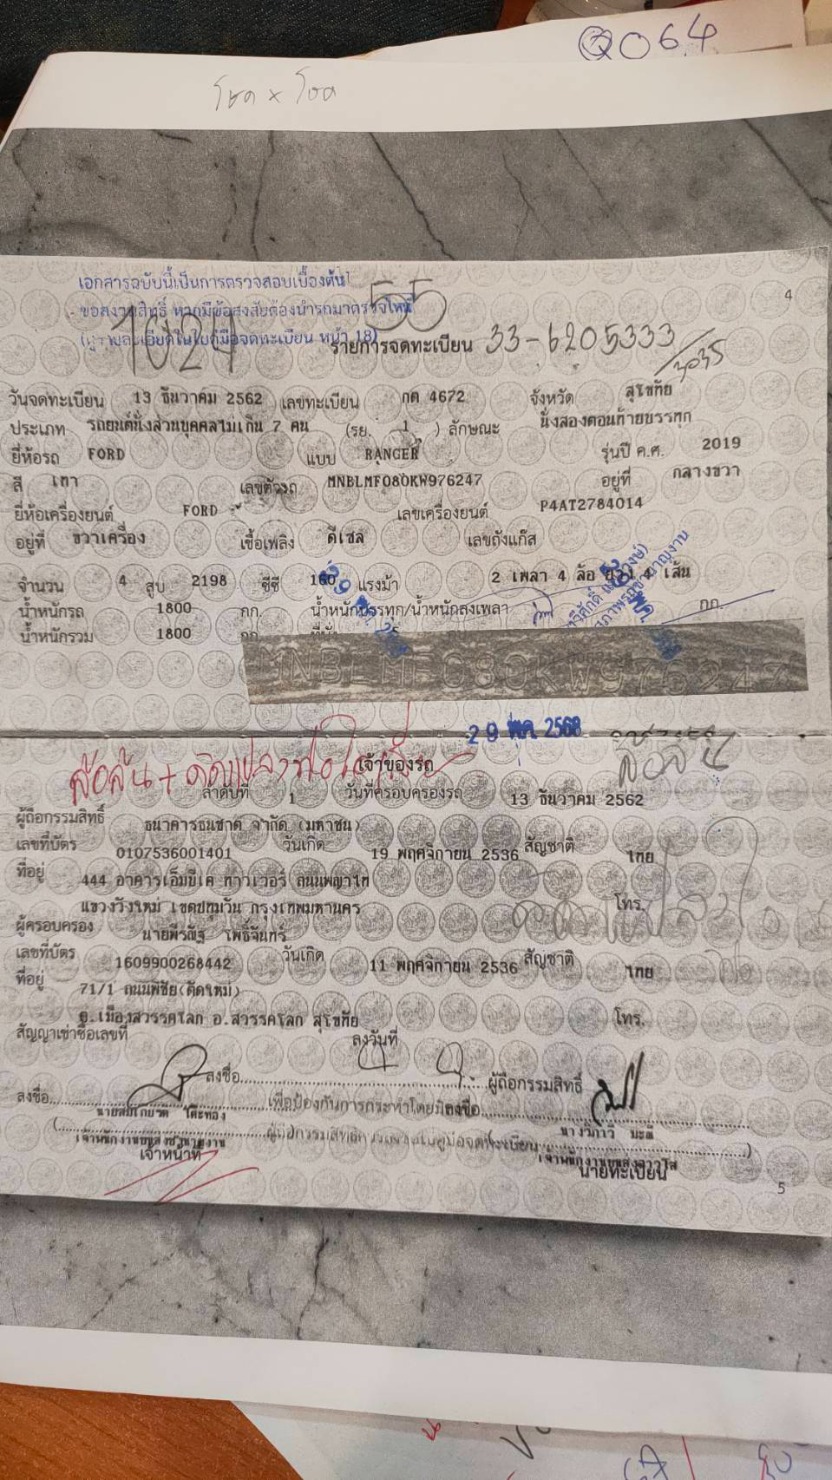 2064
โชค x โชค
เอกสารฉบับนี้เป็นการตรวจสอบเบื้องต้น
ขอสงวนสิทธิ์ หากมีข้อสงสัยต้องนำรถมาตรวจใหม่
จดทะเบียน หน้า 18)
4
1024 55
รายการจดทะเบียน 33-6205333
วันจดทะเบียน 13 ธันวาคม 2562 เลขทะเบียน กต 4672 จังหวัด สุโขทัย
ประเภท รถยนต์นั่งส่วนบุคคลไม่เกิน 7 คน (รย. 1 ) ลักษณะ นั่งสองตอนท้ายบรรทุก
ยี่ห้อรถ FORD แบบ RANGER รุ่นปี ค.ศ. 2019
สี เทา เลขตัวรถ MNBLMF080KW976247 อยู่ที่ กลางขวา
ยี่ห้อเครื่องยนต์ FORD เลขเครื่องยนต์ P4AT2784014
อยู่ที่ ขวาเครื่อง เชื้อเพลิง ดีเซล เลขถังแก๊ส
จำนวน 4 สูบ 2198 ซีซี 160 แรงม้า 2 เพลา 4 ล้อ ยาง 4 เส้น
น้ำหนักรถ 1800 กก. น้ำหนักบรรทุก/น้ำหนักลงเพลา กก.
น้ำหนักรวม 1800 กก. ที่นั่ง
MNBLMF080KW976247
29 พ.ค. 2568
ล้อล้น
เจ้าของรถ
ลำดับที่ 1 วันที่ครอบครองรถ 13 ธันวาคม 2562
ผู้ถือกรรมสิทธิ์ ธนาคารธนชาต จำกัด (มหาชน)
เลขที่บัตร 0107536001401 วันเกิด 19 พฤศจิกายน 2536 สัญชาติ ไทย
ที่อยู่ 444 อาคารเอ็มบีเค ทาวเวอร์ ถนนพญาไท
แขวงวังใหม่ เขตปทุมวัน กรุงเทพมหานคร โทร.
ผู้ครอบครอง นายพีรณัฐ โพธิ์จันทร์
เลขที่บัตร 1609900268442 วันเกิด 11 พฤศจิกายน 2536 สัญชาติ ไทย
ที่อยู่ 71/1 ถนนพิชัย(ตัดใหม่)
ต.เมืองสวรรคโลก อ.สวรรคโลก สุโขทัย โทร.
สัญญาเช่าซื้อเลขที่ ลงวันที่
ลงชื่อ ผู้ถือกรรมสิทธิ์
ลงชื่อ เพื่อป้องกันการกระทำโดยมิชอบ ลงชื่อ
เจ้าหน้าที่ นายทะเบียน
5